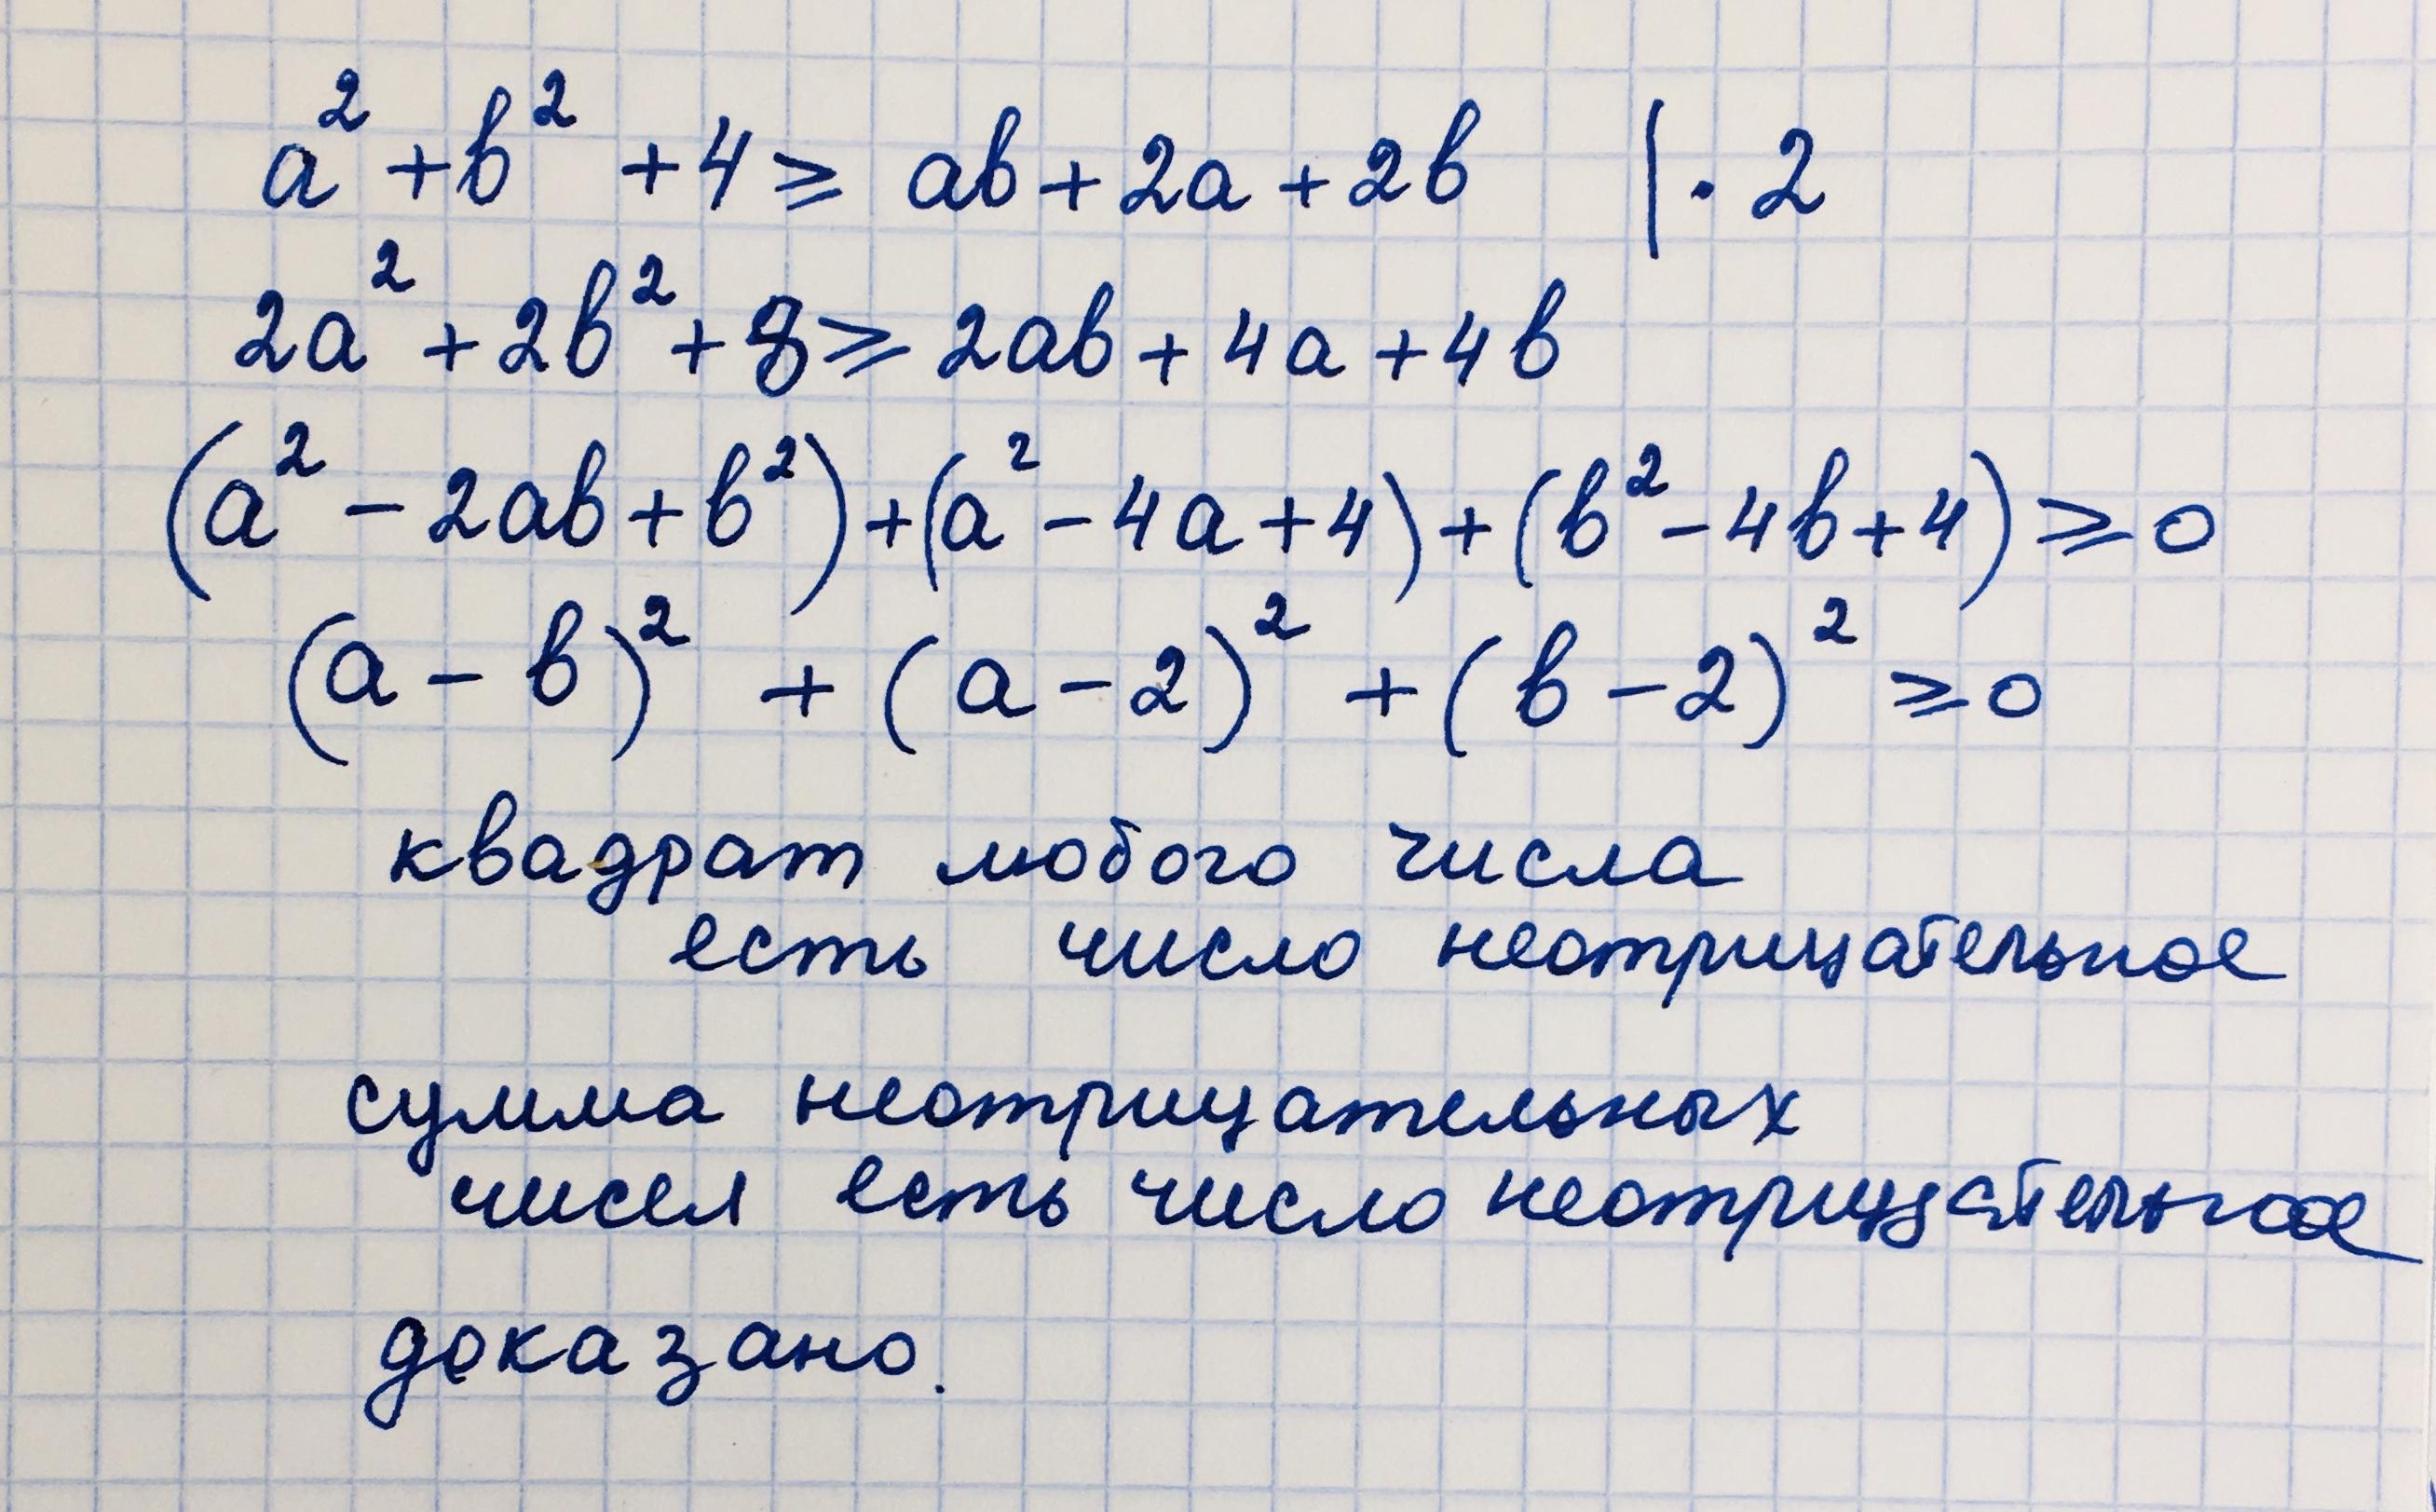 a² + b² + 4 ⩾ ab + 2a + 2b | · 2
2a² + 2b² + 8 ⩾ 2ab + 4a + 4b
(a² - 2ab + b²) + (a² - 4a + 4) + (b² - 4b + 4) ⩾ 0
(a - b)² + (a - 2)² + (b - 2)² ⩾ 0
квадрат любого числа
есть число неотрицательное
сумма неотрицательных
чисел есть число неотрицательное
доказано.